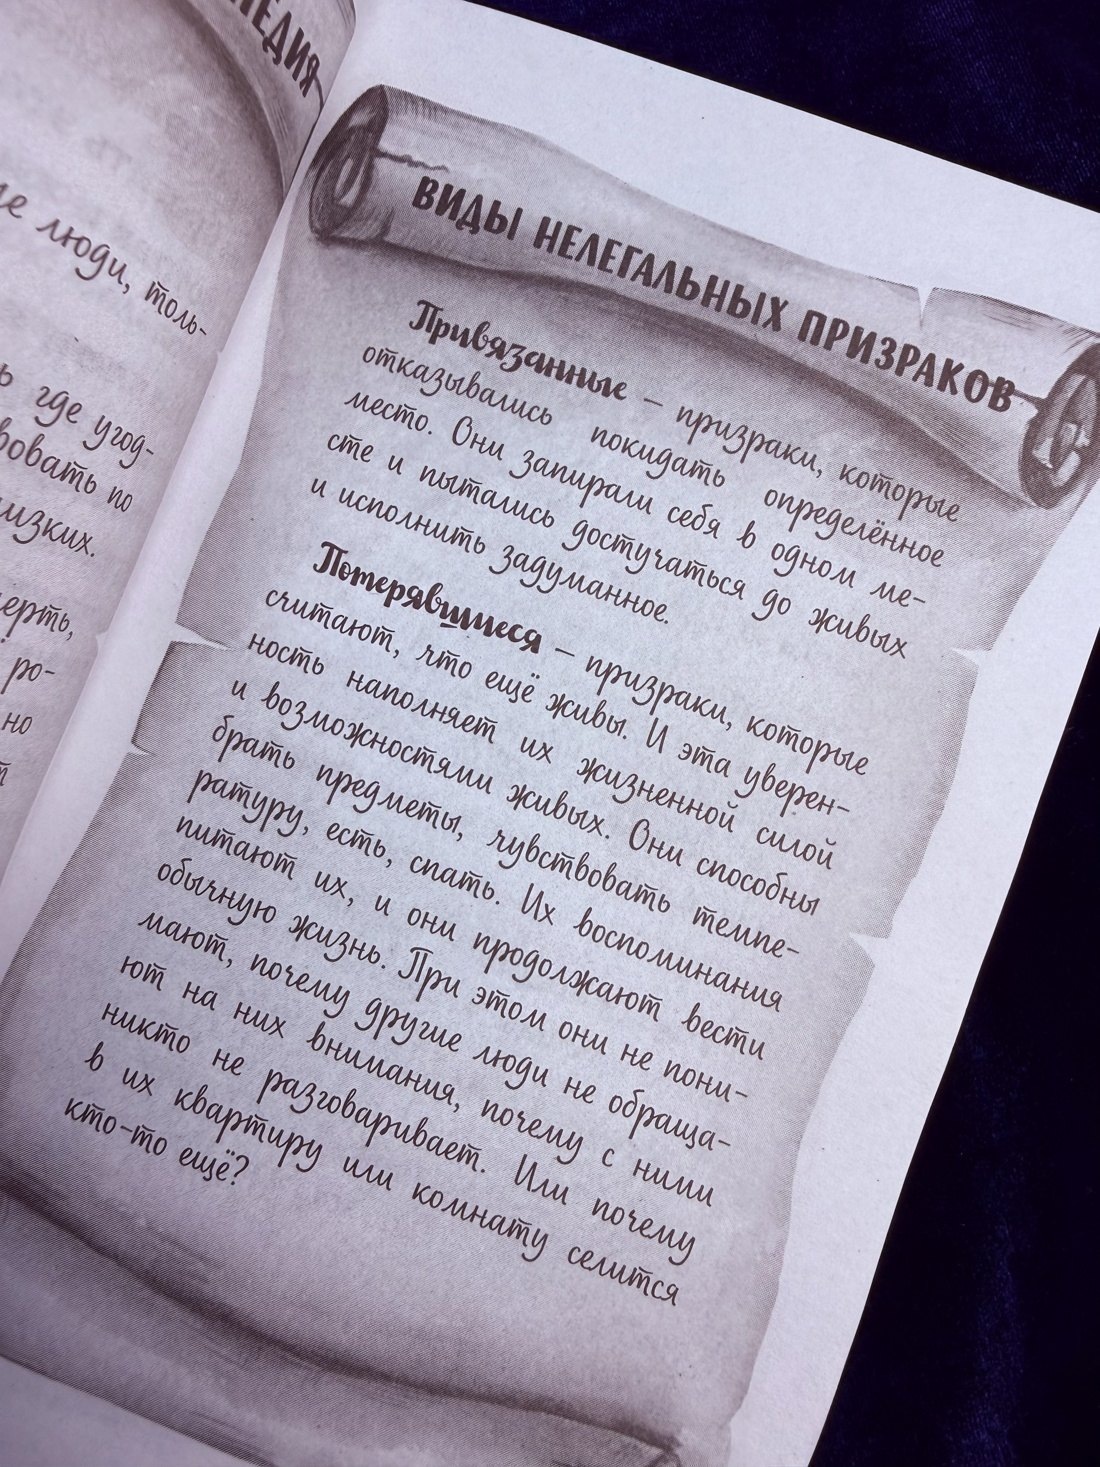 ПЕДИЯ
люди, толь-
где угод-
вовать по
лизких.
ерть,
ро-
но
т
ВИДЫ НЕЛЕГАЛЬНЫХ ПРИЗРАКОВ
Привязанные – призраки, которые
отказывались покидать определённое
место. Они запирали себя в одном ме-
сте и пытались достучаться до живых
и исполнить задуманное.
Потерявшиеся – призраки, которые
считают, что ещё живы. И эта уверен-
ность наполняет их жизненной силой
и возможностями живых. Они способны
брать предметы, чувствовать темпе-
ратуру, есть, спать. Их воспоминания
питают их, и они продолжают вести
обычную жизнь. При этом они не пони-
мают, почему другие люди не обраща-
ют на них внимания, почему с ними
никто не разговаривает. Или почему
в их квартиру или комнату селится
кто-то ещё?